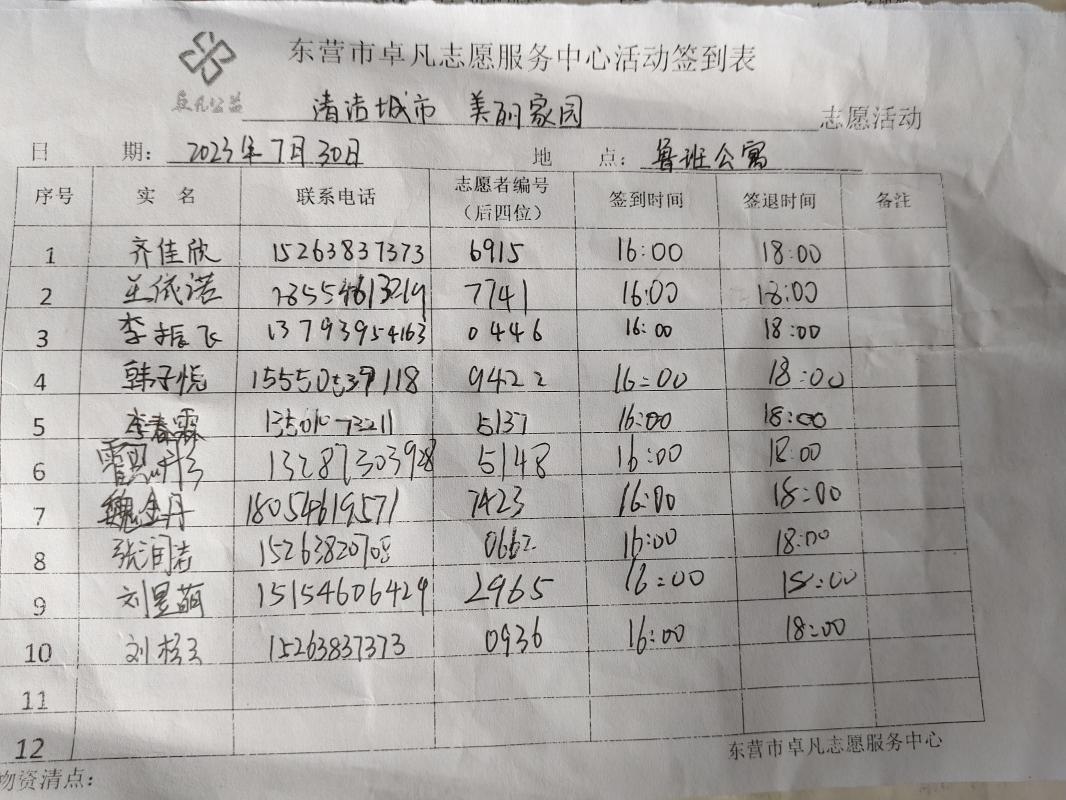 东营市卓凡志愿服务中心活动签到表
卓凡公益
清洁城市 美丽家园 志愿活动
日 期: 2023年7月30日 地 点: 鲁班公寓
序号 实 名 联系电话 志愿者编号(后四位) 签到时间 签退时间 备注
1 齐佳欣 15263837373 6915 16:00 18:00
2 王依诺 18554613219 7741 16:00 18:00
3 李振飞 13793954163 0446 16:00 18:00
4 韩子悦 9422 16:00 18:00
5 李春霖 5137 16:00 18:00
6 13287303928 5148 16:00 18:00
7 魏金丹 18054619571 7423 16:00 18:00
8 张润吉 0662 16:00 18:00
9 刘昱萌 15154606429 2965 16:00 18:00
10 刘 15263837373 0936 16:00 18:00
11
12
东营市卓凡志愿服务中心
物资清点: